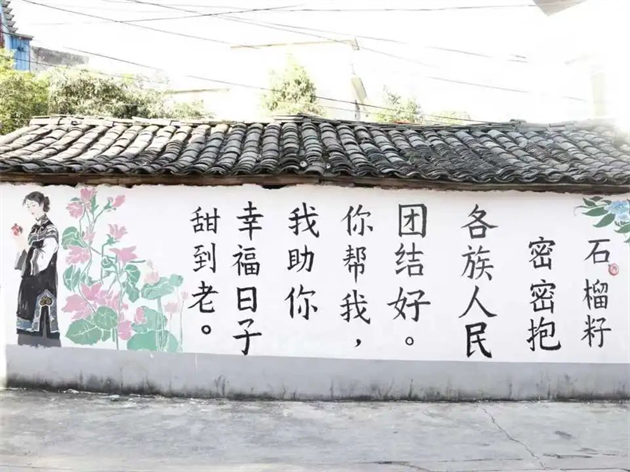 石榴籽
密密抱
各族人民
团结好。
你帮我，
我助你
幸福日子
甜到老。